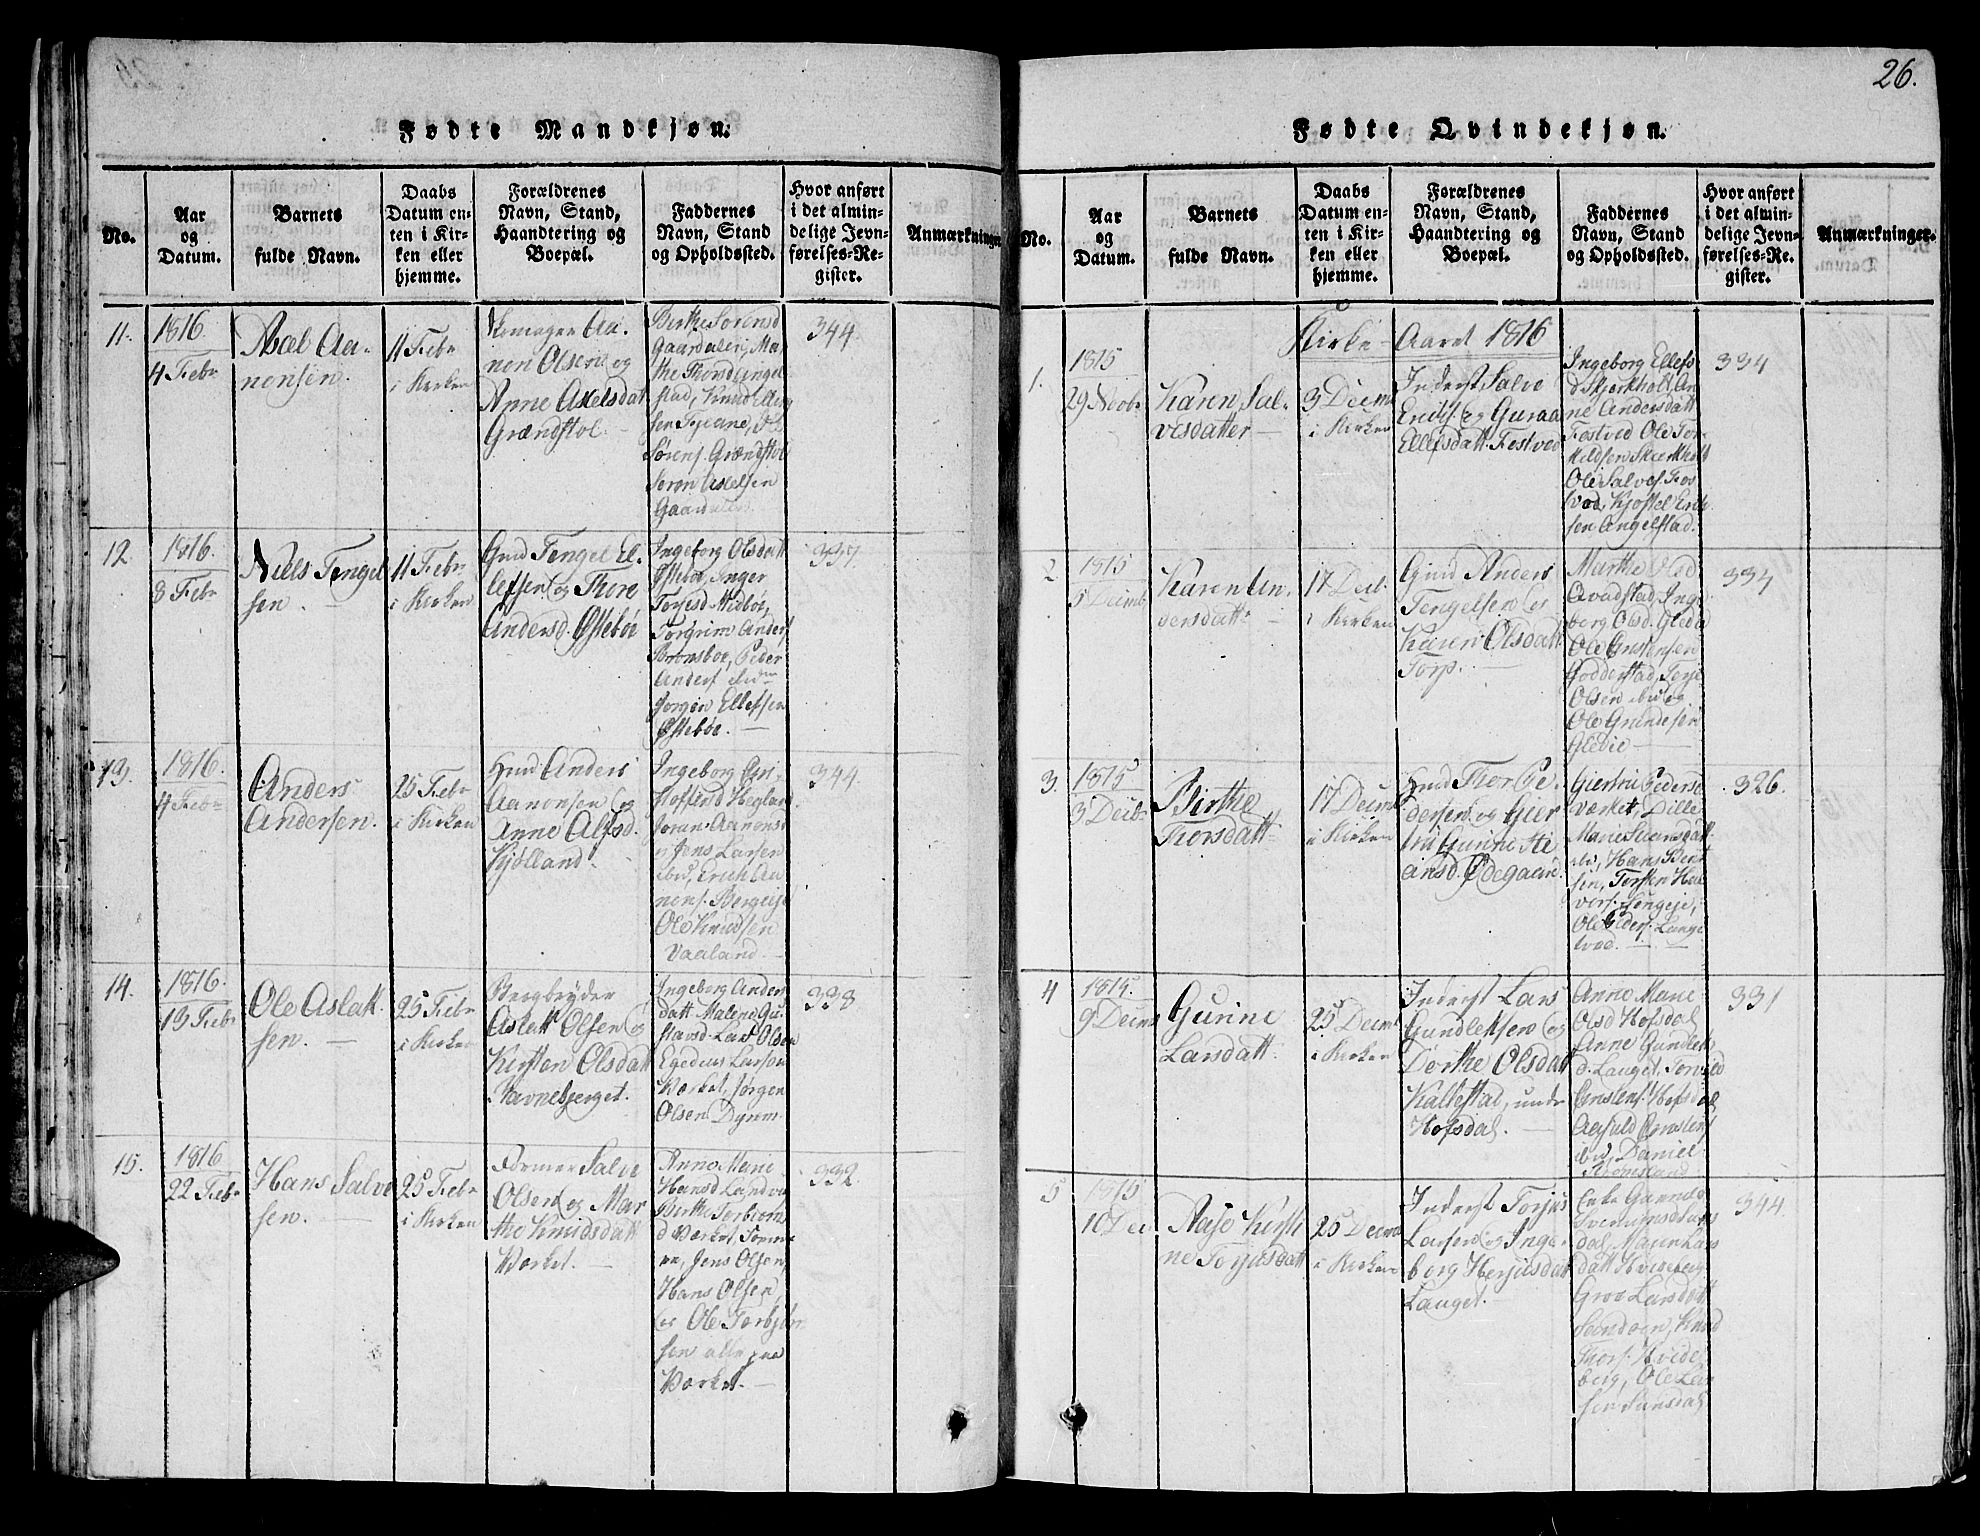 26.
Fødte Mandkjøn.
No.
Aar
og
Datum.
Barnets
fulde Navn.
Daabs
Datum en-
ten i Kir-
ken eller
hjemme.
Forældrenes
Navn, Stand,
Haandtering og
Boepæl.
Faddernes
Navn, Stand
og Opholdssted.
Hvor anført
i det almin-
delige Jevn-
førelses-Re-
gister.
Anmærkninger
11.
1816.
4 Febr
Axel Aa-
nonsen.
11 Febr
i Kirken
Aa-
non Olsen og
Anne Axelsdat
Grændstol
Birthe Sorensd
Gaardalen, Ma-
the
Knud
Sørens. Grændstol
Søren Axelsen
Gaardalen
344
12.
1816.
8 Febr
Niels Tengel
sen.
11 Febr
i Kirken
Gmd Tengel El-
lefsen og Thore
Andersd. Østebøe
Ingeborg Olsdatt
Østebøe, Inger
Torjusd Midbøe,
Torgrim Anders
Peder
Anders
Jørgen Ellefsen
Østebøe.
337.
13.
1816.
4 Febr
Anders
Andersen.
25 Febr
i Kirken
Gmd Anders
Aanonsen og
Anne Alfsd.
Kjølland
Ingeborg Chri-
stofersd Hegland
Joran Aanons-
Jens Larsen
ibid, Erich Aa-
nens.
Ole Knudsen
Vaaland.
344
14.
1816.
13 Febr
Ole Aslak
sen.
25 Febr
i Kirken
Bergbryder
Aslak Olsen og
Kirsten Olsdatt
Ravnebjerget.
Ingeborg Anders
datt Malene Gu-
stavsd. Lars Olsen
Egedeus Larsen
Værket, Jørgen
Olsen
338
15.
1816
22 Febr
Hans Salve
sen.
25 Febr
i Kirken
Former Salve
Olsen og Mar
the Knudsdatt
Værket.
Anne Marie
Hansd
Birthe Torbiorns
d Værket
Jens Olsen,
Hans Olsen
og Ole Torbjørn
sen alle paa
Værket.
332.
Fødte Qvindekjøn.
No.
Aar
og
Datum.
Barnets
fulde Navn.
Daabs
Datum en-
ten i Kir-
ken eller
hjemme.
Forældrenes
Navn, Stand,
Haandtering og
Boepæl.
Faddernes
Navn, Stand
og Opholdssted.
Hvor anført
i det almin-
delige Jevn-
førelses-Re-
gister.
Anmærkninger.
Kirke-Aaret 1816
1.
1815
29 Novbr
Karen Sal-
vesdatter
3 Decmb
i Kirken
Inderst Salve
Erichs. og Guraa
Ellefsdatt. Fostved
Ingeborg Ellefs
d Skjerkholt, An
ne Andersdatt
Fostved Ole Tor
kildsen Skierkholt
Ole Salves. Fos
ved, Kjostel Erik
sen Angelstad.
334
2
1815
5 Decmb
Karen An-
dersdatt
17 Decb
i Kirken
Gmd Anders
Tengelsen og
Karen Olsdatt
Torp.
Marthe Olsd
Qvadstad, Inge
borg Olsd. Gledie
Ole
Godderstad, Torje
Olsen ibid og
Ole Gundesen
Gledie
334
3.
1815
3 Decbr
Birthe
Thorsdatt
17 Decmb
i Kirken
Gmd Thor Pe-
dersen og Gier
tru Gurine Ste
ansd. Ødegaard.
Giertru Peders
Værket, Lille
Marie Steansdatt
ibid, Hans Bent
sen, Torsten Hal
vors.
Ole Peders. Lange
tved.
326.
4
1815.
9 Decmb
Gurine
Larsdatt.
25 Decmb
i Kirken
Inderst Lars
Gundleksen og
Dorthe Olsdatt
Kallestad, under
Hofsdal.
Anne Marie
Olsd Hofsdal
Anne Gundlek
d. Lauget.
Hofsdal
ibid, Daniel
331
5
1815
10 Dec
Aase Kirsti
ne Torjusdatt
25 Decmb
i Kirken
Inderst Torjus
Larsen og Inge-
borg Herjusdatt
Lauget.
Enke
dal, Maren Lars
datt Hvideberg
Groe Larsdatt
Knud
Thors. Hvide
berg, Ole Lar
sen
344